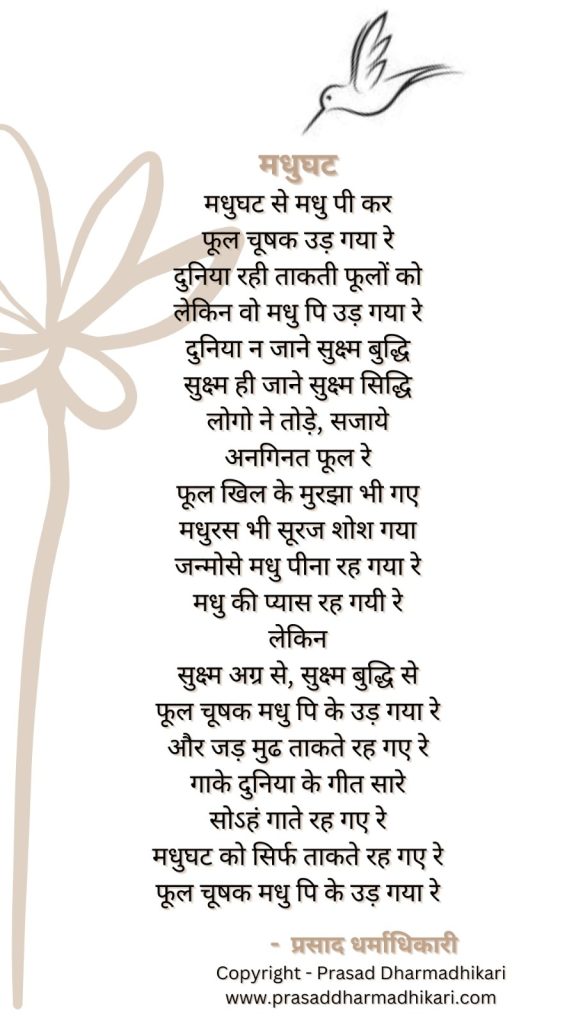 मधुघट
मधुघट से मधु पी कर
फूल चूषक उड़ गया रे
दुनिया रही ताकती फूलों को
लेकिन वो मधु पि उड़ गया रे
दुनिया न जाने सुक्ष्म बुद्धि
सुक्ष्म ही जाने सुक्ष्म सिद्धि
लोगो ने तोड़े, सजाये
अनगिनत फूल रे
फूल खिल के मुरझा भी गए
मधुरस भी सूरज शोश गया
जन्मोसे मधु पीना रह गया रे
मधु की प्यास रह गयी रे
लेकिन
सुक्ष्म अग्र से, सुक्ष्म बुद्धि से
फूल चूषक मधु पि के उड़ गया रे
और जड़ मुढ ताकते रह गए रे
गाके दुनिया के गीत सारे
सोऽहं गाते रह गए रे
मधुघट को सिर्फ ताकते रह गए रे
फूल चूषक मधु पि के उड़ गया रे
- प्रसाद धर्माधिकारी
Copyright - Prasad Dharmadhikari
www.prasaddharmadhikari.com